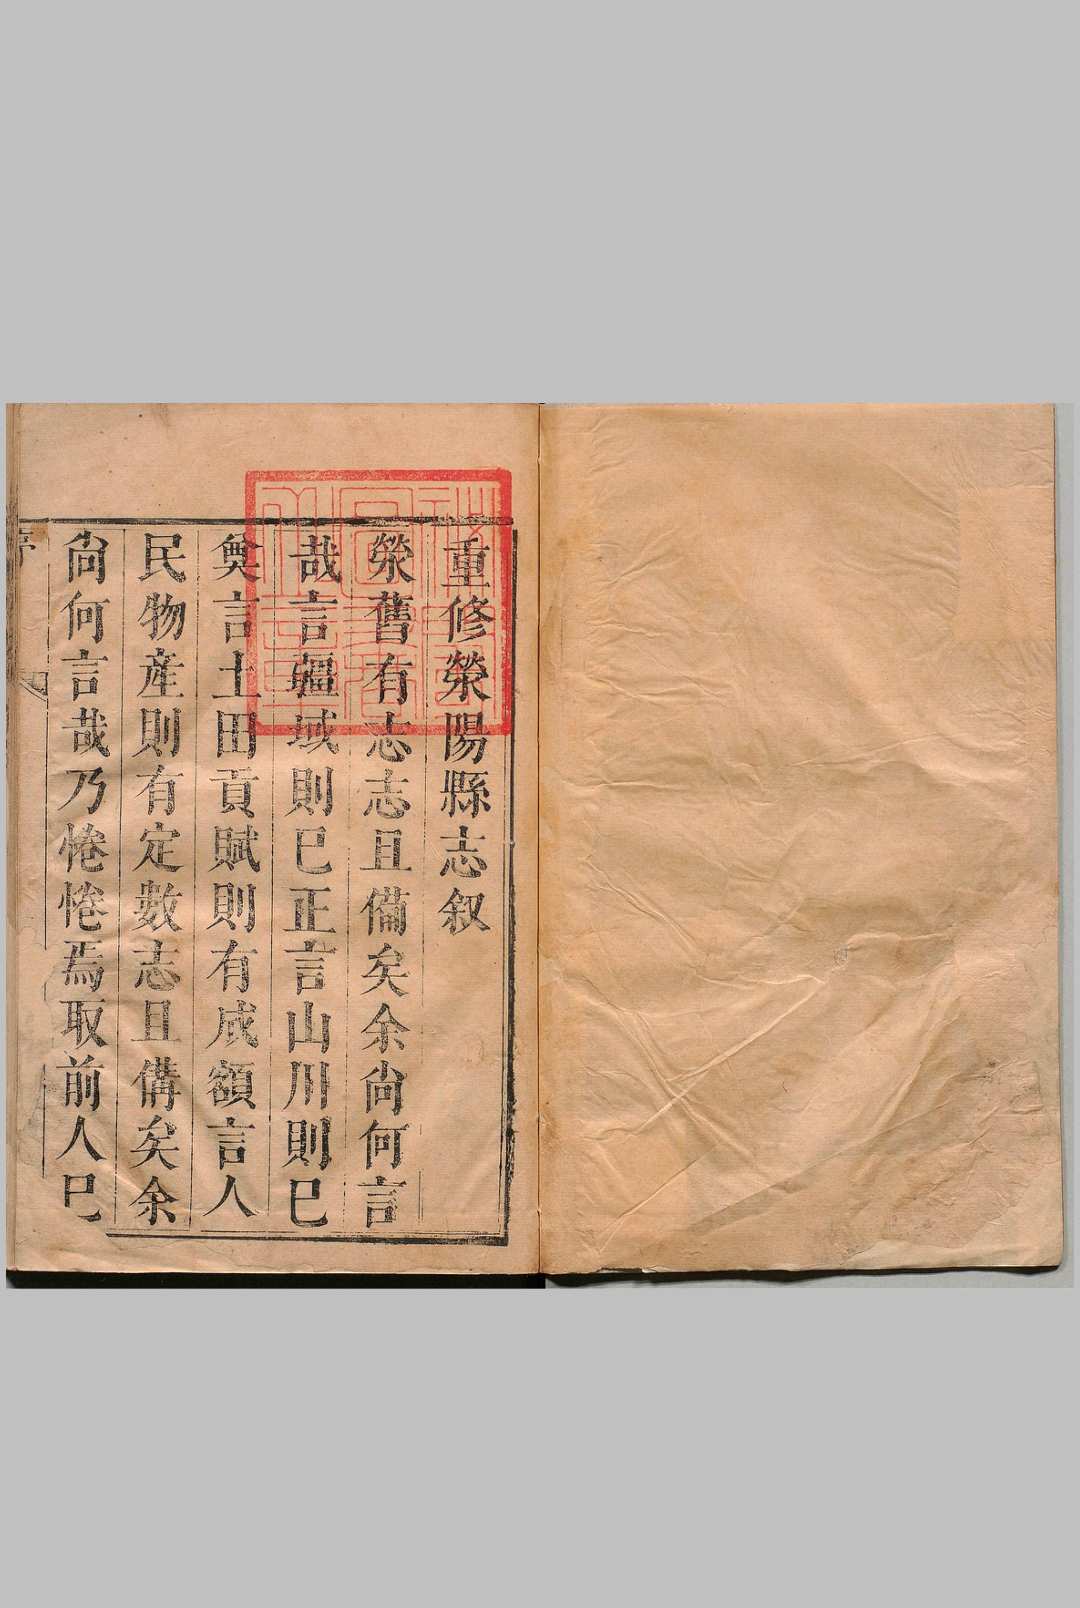 重修滎陽縣志叙
滎舊有志志且備矣余尚何言
哉言疆域則已正言山川則已
奠言土田貢賦則有成額言人
民物產則有定數志且備矣余
尚何言哉乃惓惓焉取前人已